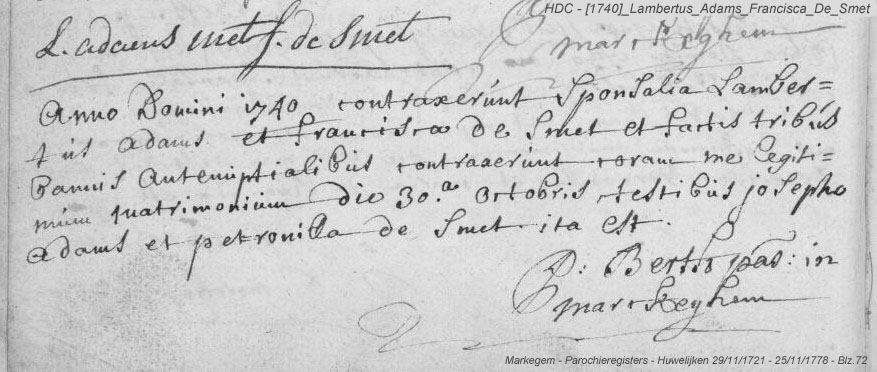 HDC - [1740]_Lambertus_Adams_Francisca_De_Smet
L. adaens met f. de Smet
marckeghem
Anno Domini 1740 contraxerunt Sponsalia Lamber=
tus Adams et Francisca de Smet et factis tribus
bannis Antenuptialibus contraxerunt coram me legiti=
mum matrimonium die 30.a Octobris, testibus josepho
Adams et petronilla de Smet. ita est.
P: Bertho pas: in
marckeghem
Markegem - Parochieregisters - Huwelijken 29/11/1721 - 25/11/1778 - Blz.72